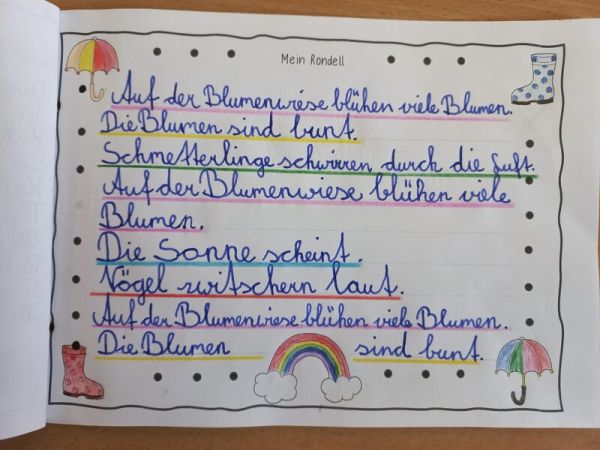 Mein Rondell
Auf der Blumenwiese blühen viele Blumen.
Die Blumen sind bunt.
Schmetterlinge schwirren durch die Luft.
Auf der Blumenwiese blühen viele
Blumen.
Die Sonne scheint.
Vögel zwitschern laut.
Auf der Blumenwiese blühen viele Blumen.
Die Blumen sind bunt.